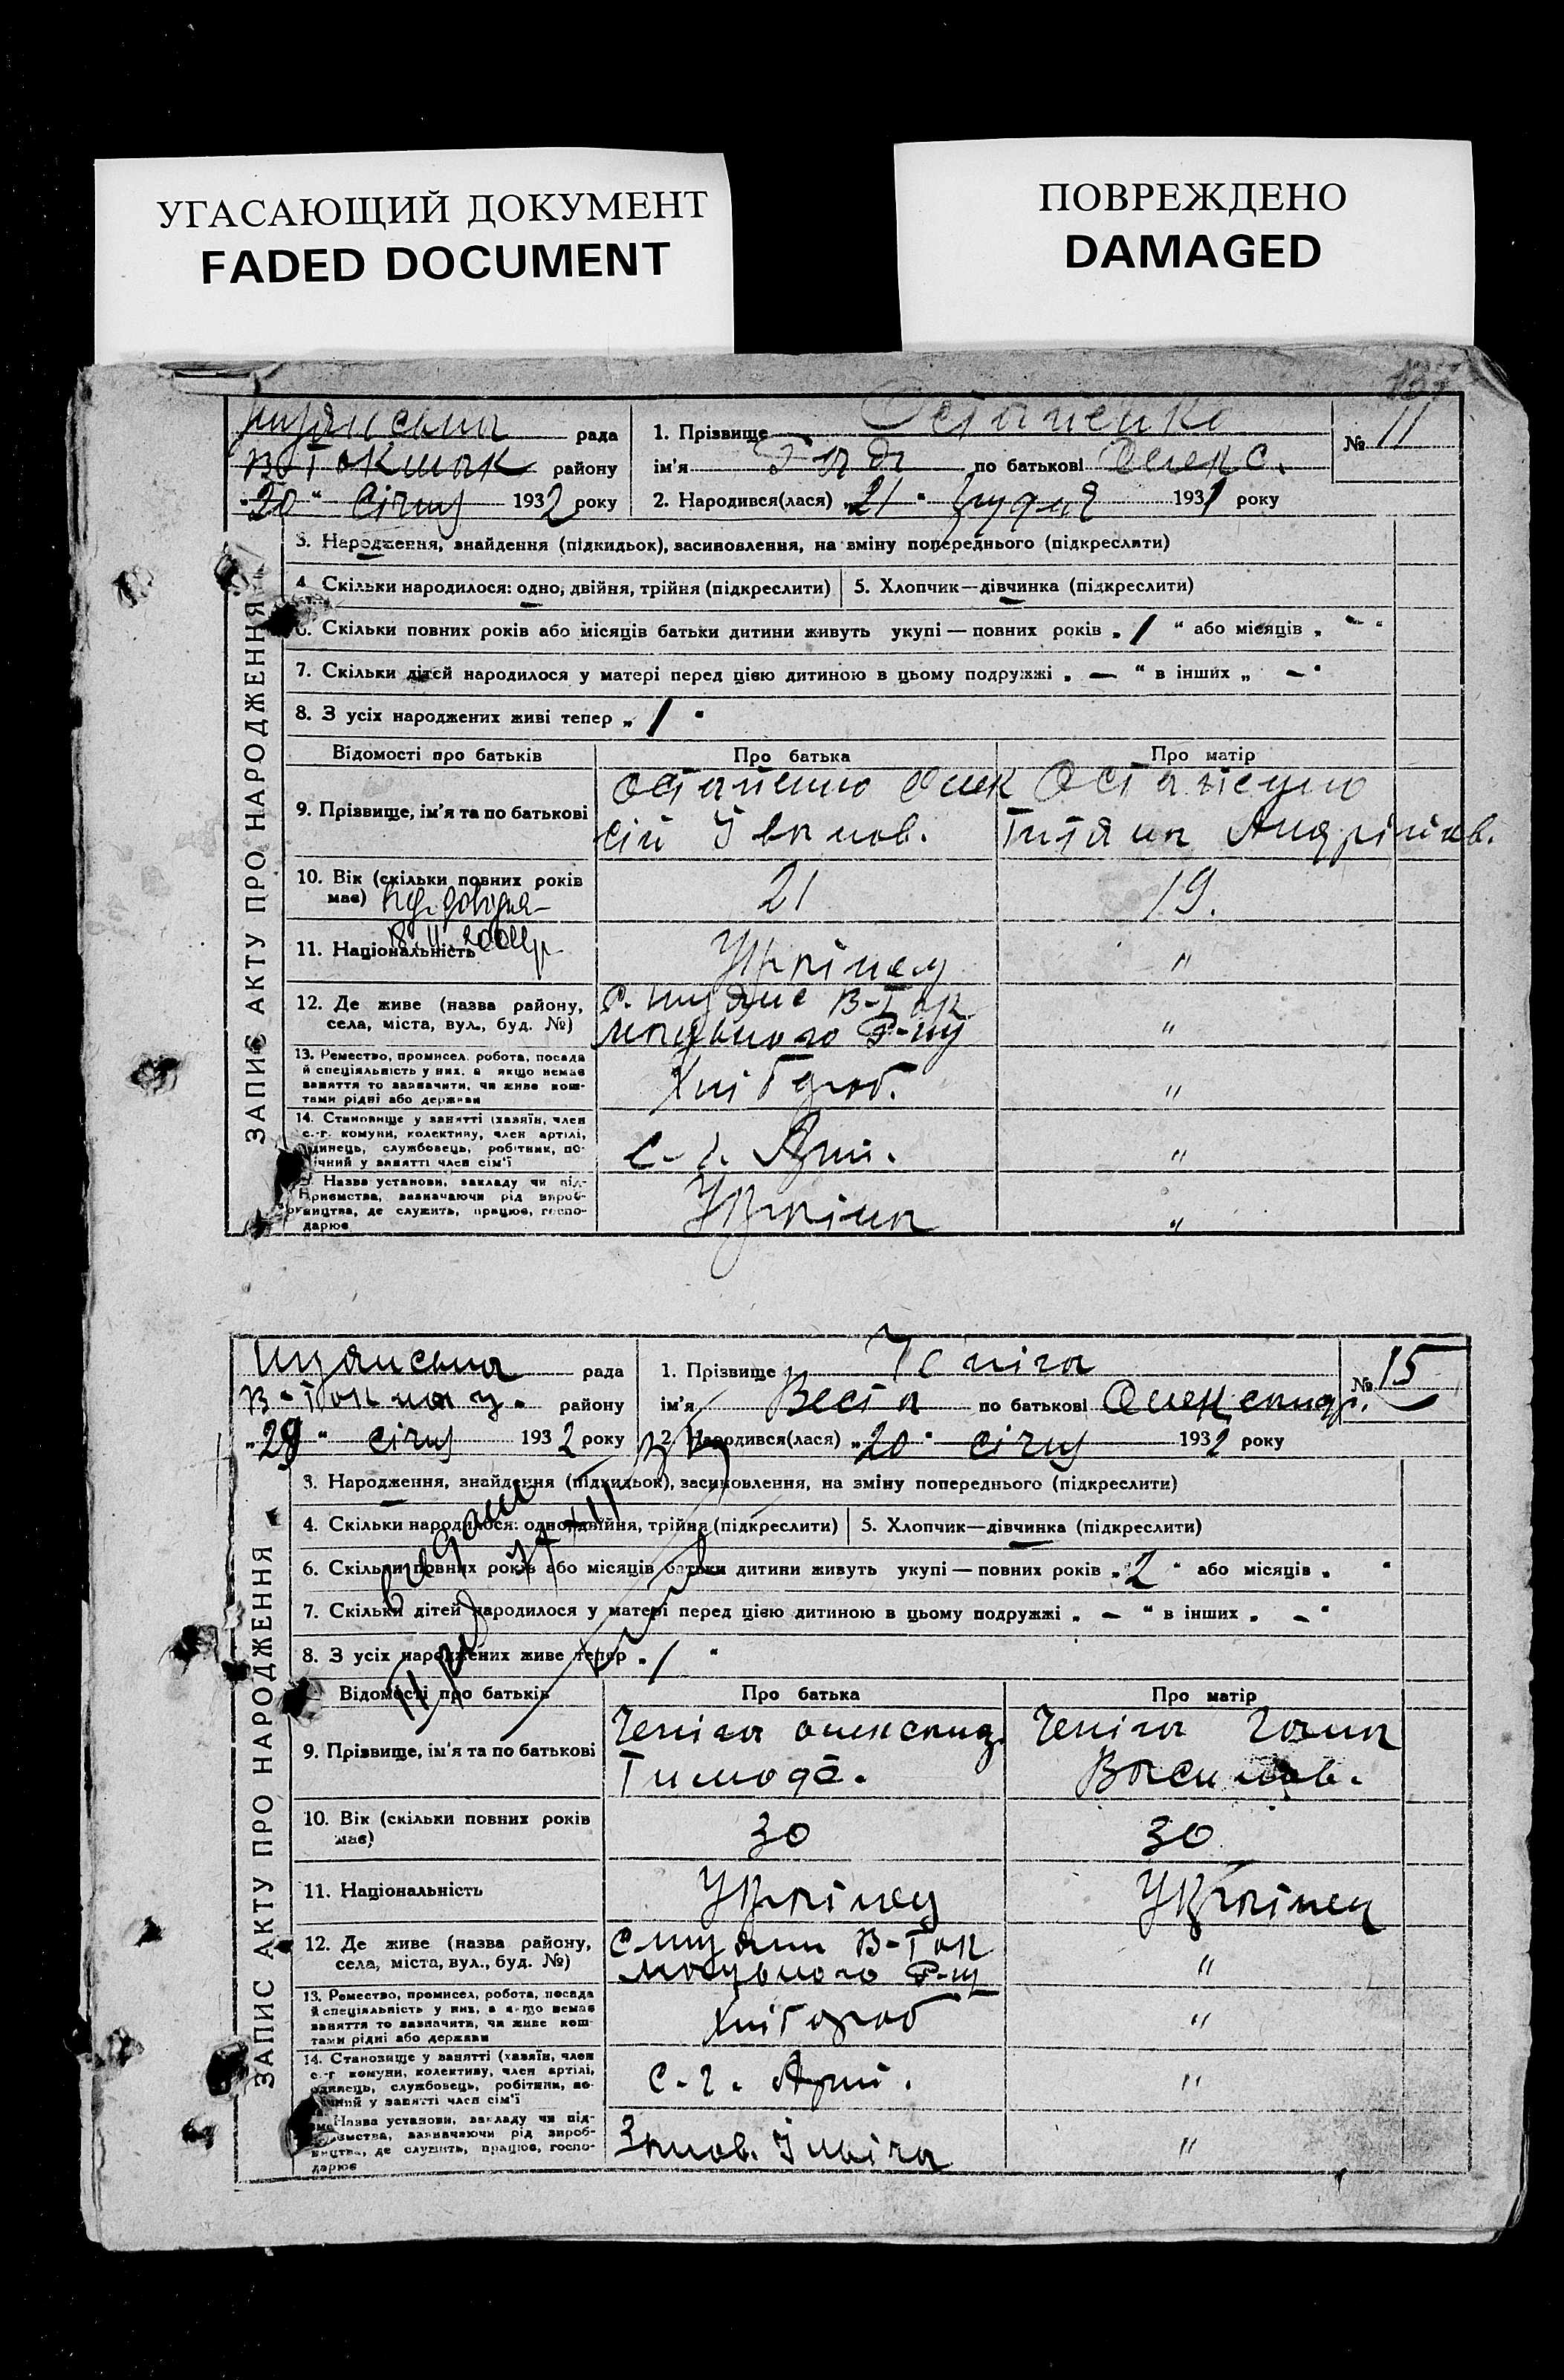 УГАСАЮЩИЙ ДОКУМЕНТ
FADED DOCUMENT
ПОВРЕЖДЕНО
DAMAGED
ЗАПИС АКТУ ПРО НАРОДЖЕННЯ
рада
В-Токмак району
"20" Січня 1932 року
1. Прізвище Остапенко
№ 11
ім'я по батькові Олекс.
2. Народився(лася) "21" грудня 1931 року
3. Народження, знайдення (підкидьок), засиновлення, на зміну попереднього (підкреслити)
4. Скільки народилося: одно, двійня, трійня (підкреслити) 5. Хлопчик—дівчинка (підкреслити)
6. Скільки повних років або місяців батьки дитини живуть укупі — повних років „ 1 “ або місяців „ — “
7. Скільки дітей народилося у матері перед цією дитиною в цьому подружжі „ — “ в інших „ — “
8. З усіх народжених живі тепер „ 1 “
Відомості про батьків Про батька Про матір
9. Прізвище, ім'я та по батькові
Остапенко Олек
сій Іванов.
Остапенко
Титяна Андріїв.
10. Вік (скільки повних років має) 21 19.
11. Національність Украінец "
12. Де живе (назва району, села, міста, вул., буд. №)
В-Ток
мацького Р-ну
"
13. Ремество, промисел, робота, посада
й спеціяльність у них, а якщо немає
заняття то зазначити, чи живе кош-
тами рідні або держави
Хлібороб. "
14. Становище у занятті (хазяїн, член
с.-г. комуни, колективу, член артілі,
одинець, службовець, робітник, по-
мічний у занятті член сім'ї
С-г. Арт. "
Назва установи, закладу чи під-
приємства, зазначаючи рід вироб-
ництва, де служить, працює, госпо-
дарює
Украіна "
ЗАПИС АКТУ ПРО НАРОДЖЕННЯ
рада
В-Токмац. району
"29" січня 1932 року
1. Прізвище Чепіга
№ 15
ім'я Веста по батькові Олександр.
2. Народився(лася) "20" січня 1932 року
3. Народження, знайдення (підкидьок), засиновлення, на зміну попереднього (підкреслити)
4. Скільки народилося: одно, двійня, трійня (підкреслити) 5. Хлопчик—дівчинка (підкреслити)
6. Скільки повних років або місяців батьки дитини живуть укупі — повних років „ 2 “ або місяців „ “
7. Скільки дітей народилося у матері перед цією дитиною в цьому подружжі „ — “ в інших „ — “
8. З усіх народжених живе тепер „ 1 “
Відомості про батьків Про батька Про матір
9. Прізвище, ім'я та по батькові
Чепіга олександ.
Тимофе.
Чепіга Ганна
Васильов.
10. Вік (скільки повних років має) 30 30
11. Національність Украінец Украінец
12. Де живе (назва району, села, міста, вул., буд. №)
В-Ток
мацького Р-ну
"
13. Ремество, промисел, робота, посада
й спеціяльність у них, а якщо немає
заняття то зазначити, чи живе кош-
тами рідні або держави
Хлібороб "
14. Становище у занятті (хазяїн, член
с.-г. комуни, колективу, член артілі,
одинець, службовець, робітник, по-
мічний у занятті член сім'ї
С-г. Арт. "
Назва установи, закладу чи під-
приємства, зазначаючи рід вироб-
ництва, де служить, працює, госпо-
дарює
Іліча "